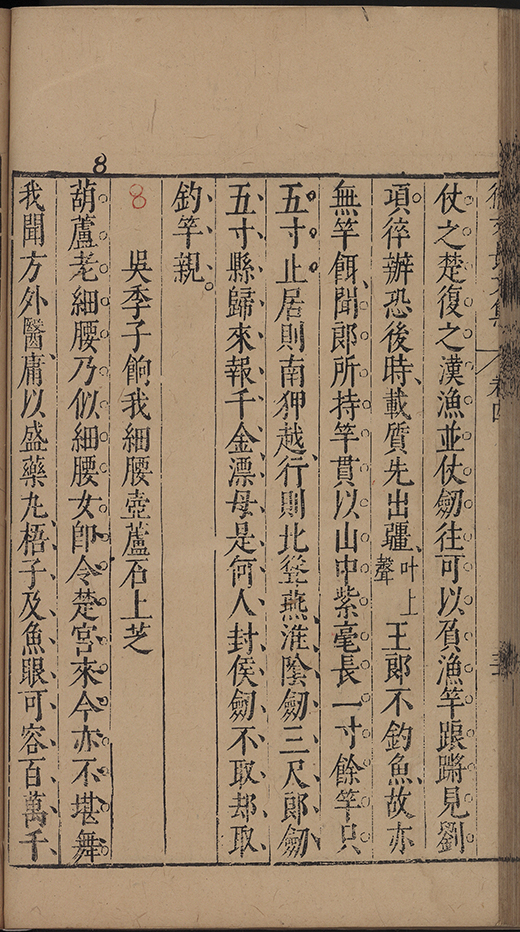 徐文長文集 卷四
仗之楚復之漢漁並仗劒往可以負漁竿踉蹡見劉
項猝辦恐後時載質先出疆叶上聲王郎不釣魚故亦
無竿餌聞郎所持竿貫以山中紫毫長一寸餘竿只
五寸止居則南狎越行則北登燕淮陰劒三尺郎劒
五寸縣歸來報千金漂母是何人封侯劒不取却取
釣竿親
8
8
吳季子餉我細腰壺蘆石上芝
葫蘆老細腰乃似細腰女卽令楚宮來今亦不堪舞
我聞方外醫庸以盛藥丸梧子及魚眼可容百萬千